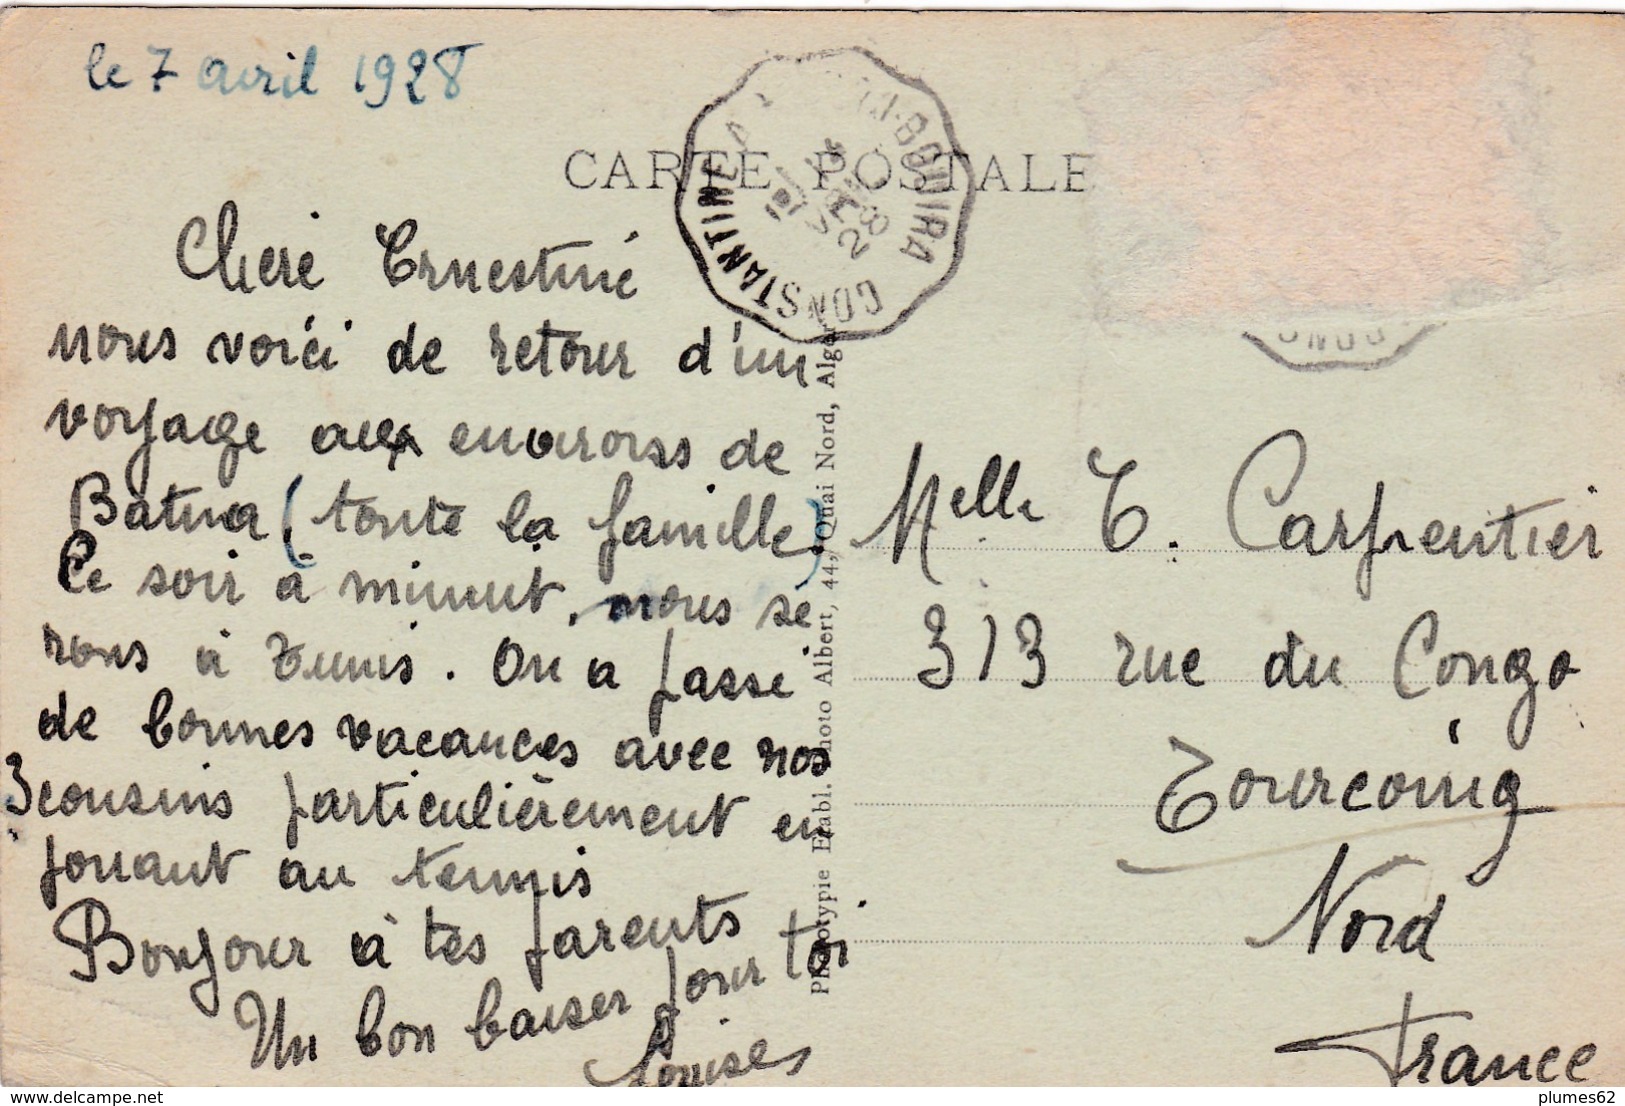 le 7 avril 1928
CARTE POSTALE
CONSTANTINE
BOUIRA
CONS
Cheré Ernestine
nous voici de retour d'un
voyage aux environs de
Batna (toute la famille)
Ce soir à minuit, nous se
rons à Tunis. On a passé
de bonnes vacances avec nos
3 cousins particulièrement en
jouant au tennis
Bonjour à tes parents
Un bon baiser pour toi
Louises
Phototypie Etabl. Photo Albert, 44, Quai Nord, Alger
Melle E. Carpentier
313 rue du Congo
Tourcoing
Nord
France
delcampe.net
plumes62